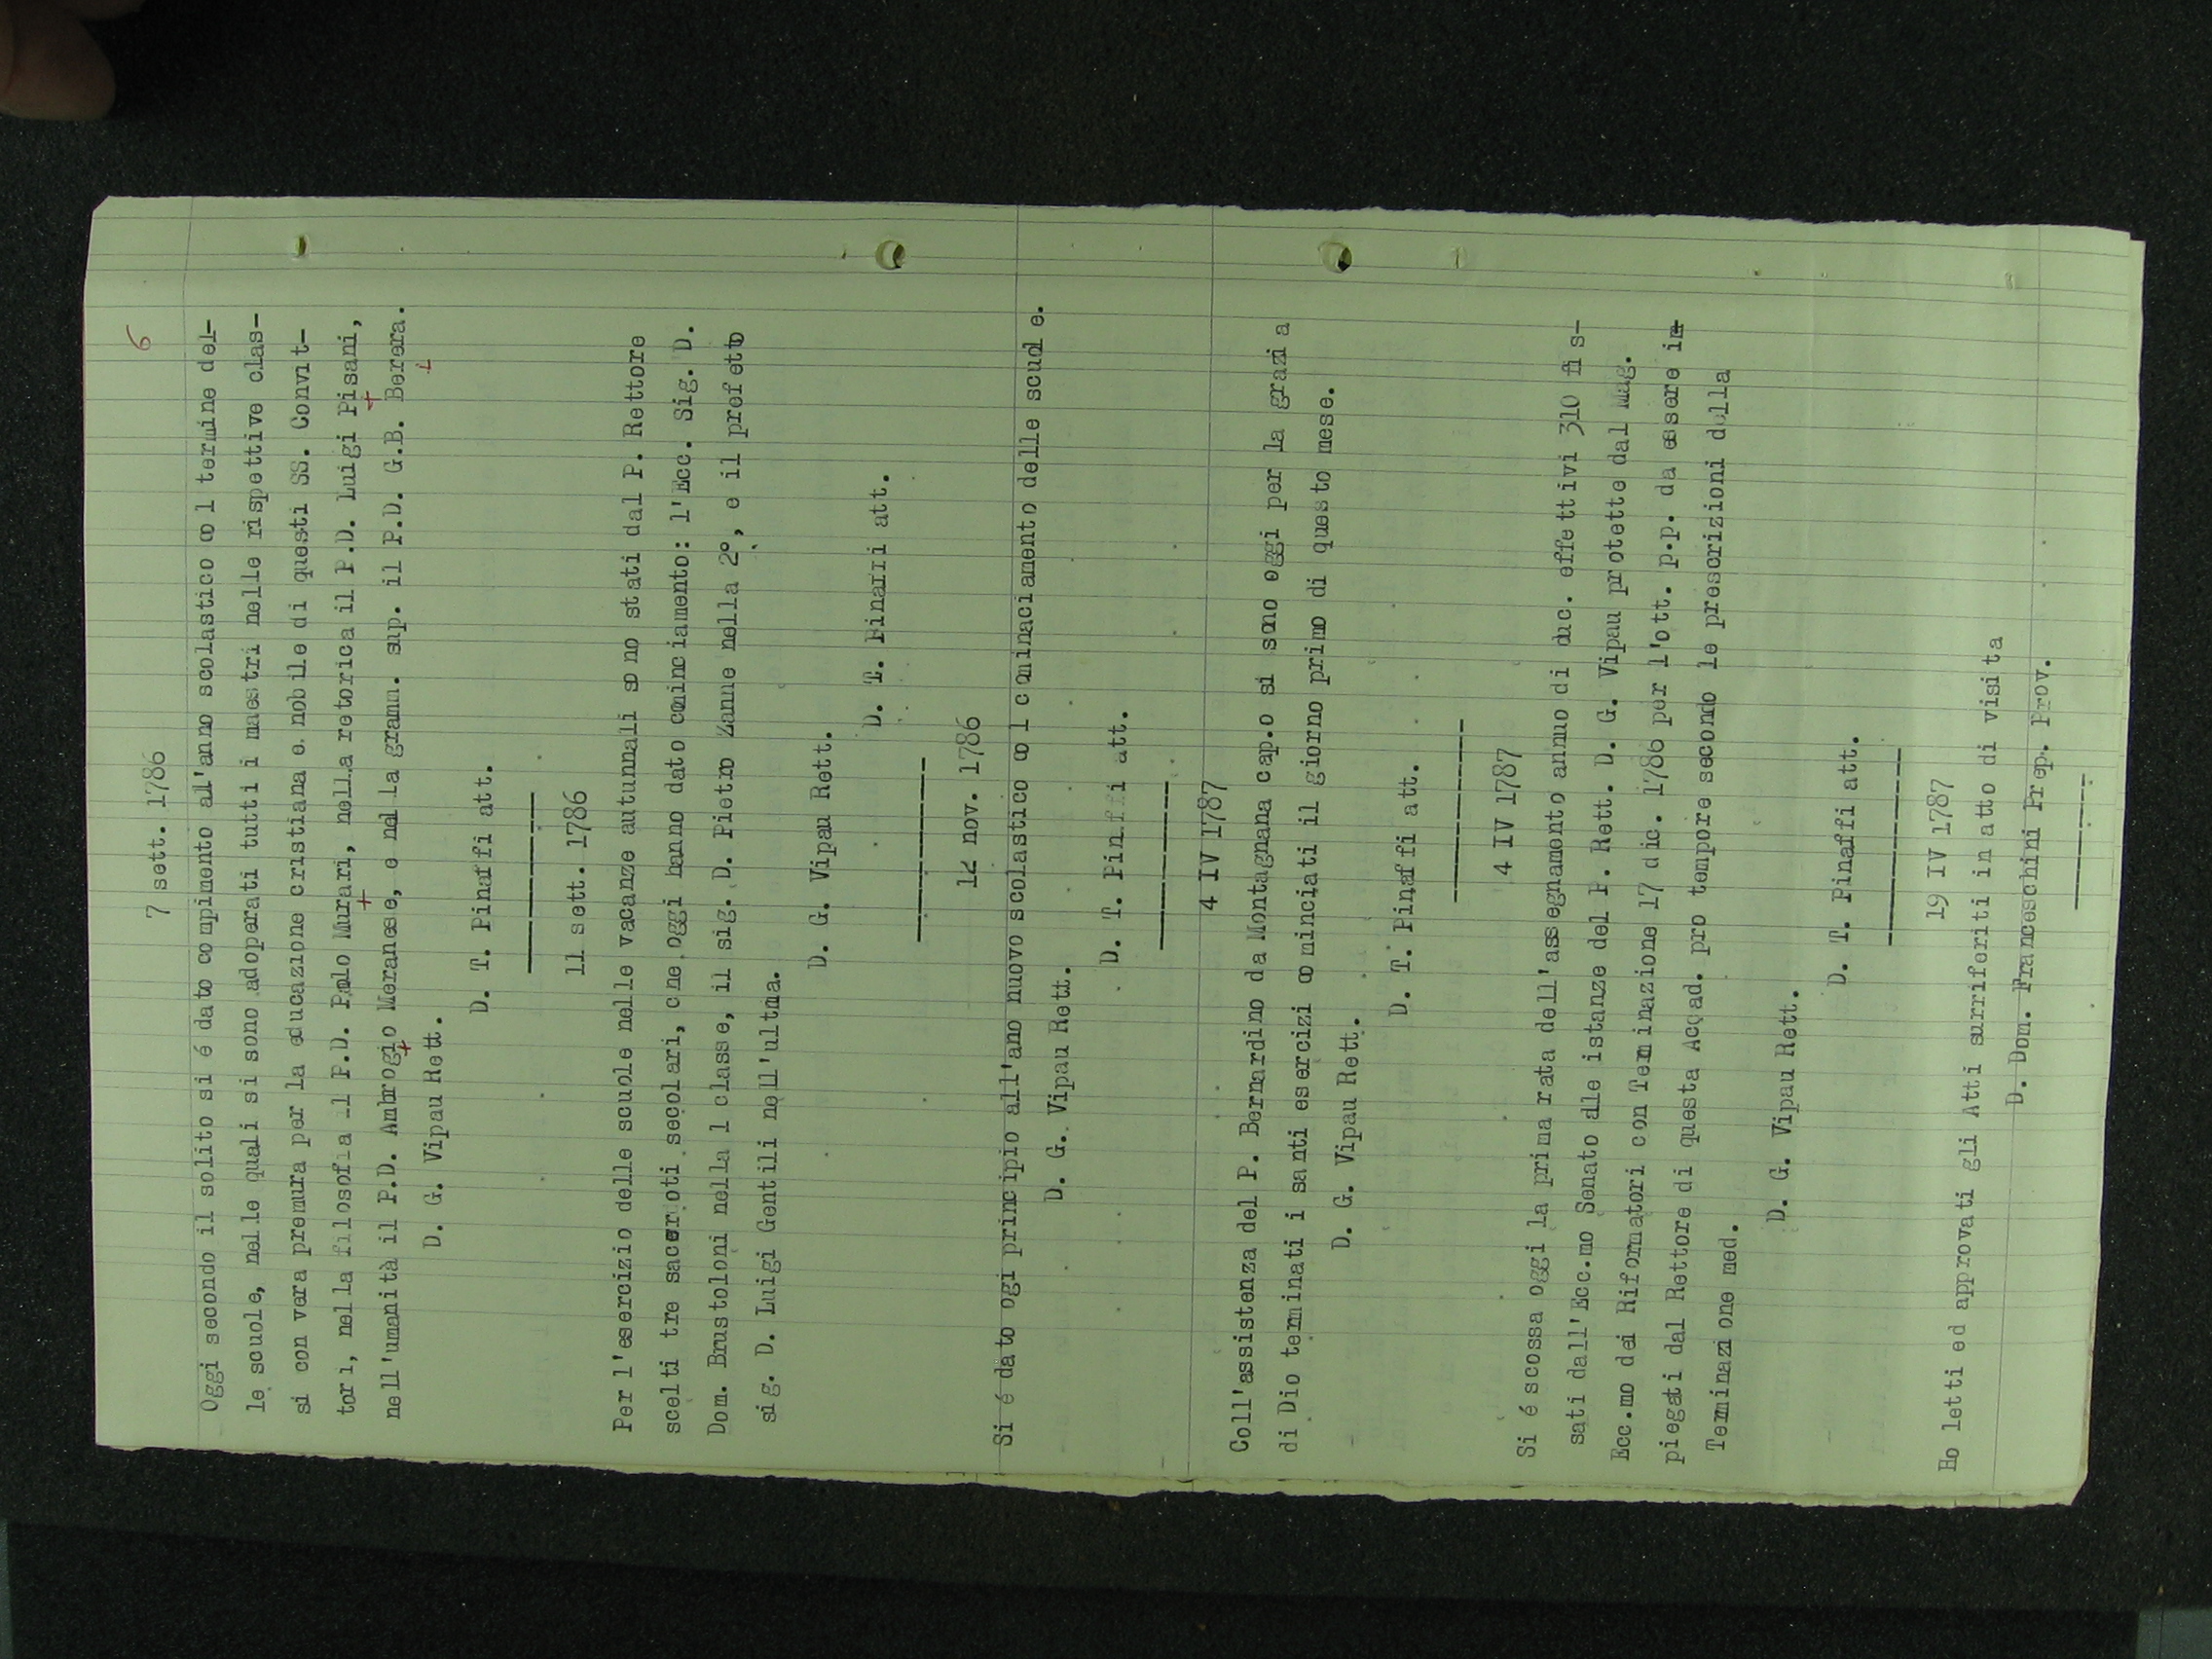 6
7 sett. 1786
Oggi secondo il solito si é dato compimento all'anno scolastico col termine del-
le scuole, nelle quali si sono adoperati tutti i maestri nelle rispettive clas-
si con vera premura per la educazione cristiana e nobile di questi SS. Convit-
tori, nella filosofia il P.D. Paolo Murari, nella retorica il P.D. Luigi Pisani,
nell'umanità il P.D. Ambrogio Meranese, e nella gramm. sup. il P.D. G.B. Berera.
D. G. Vipau Rett.
D. T. Pinaffi att.
11 sett. 1786
Per l'esercizio delle scuole nelle vacanze autunnali sono stati dal P. Rettore
scelti tre sacerdoti secolari, che oggi hanno dato cominciamento: l'Ecc. Sig. D.
Dom. Brustoloni nella 1 classe, il sig. D. Pietro Zanne nella 2°, e il prefetto
sig. D. Luigi Gentili nell'ultma.
D. G. Vipau Rett.
D. T. Pinaffi att.
12 nov. 1786
Si é dato ogi principio all'ano nuovo scolastico col cominaciamento delle scuole.
D. G. Vipau Rett.
D. T. Pinaffi att.
4 IV 1787
Coll'assistenza del P. Bernardino da Montagnana cap.o si sono oggi per la grazia
di Dio terminati i santi esercizi cominciati il giorno primo di questo mese.
D. G. Vipau Rett.
D. T. Pinaffi att.
4 IV 1787
Si é scossa oggi la prima rata dell'assegnamento annuo di duc. effettivi 310 fis-
sati dall'Ecc.mo Senato alle istanze del P. Rett. D. G. Vipau protette dal Mag.
Ecc.mo dei Rifornatori con Terminazione 17 dic. 1786 per l'ott. p.p. da essere im-
piegati dal Rettore di questa Acçad. pro tempore secondo le prescrizioni della
Terminazione med.
D. G. Vipau Rett.
D. T. Pinaffi att.
19 IV 1787
Ho letti ed approvati gli Atti surriferiti in atto di visita
D. Dom. Franceschini Prep. Prov.